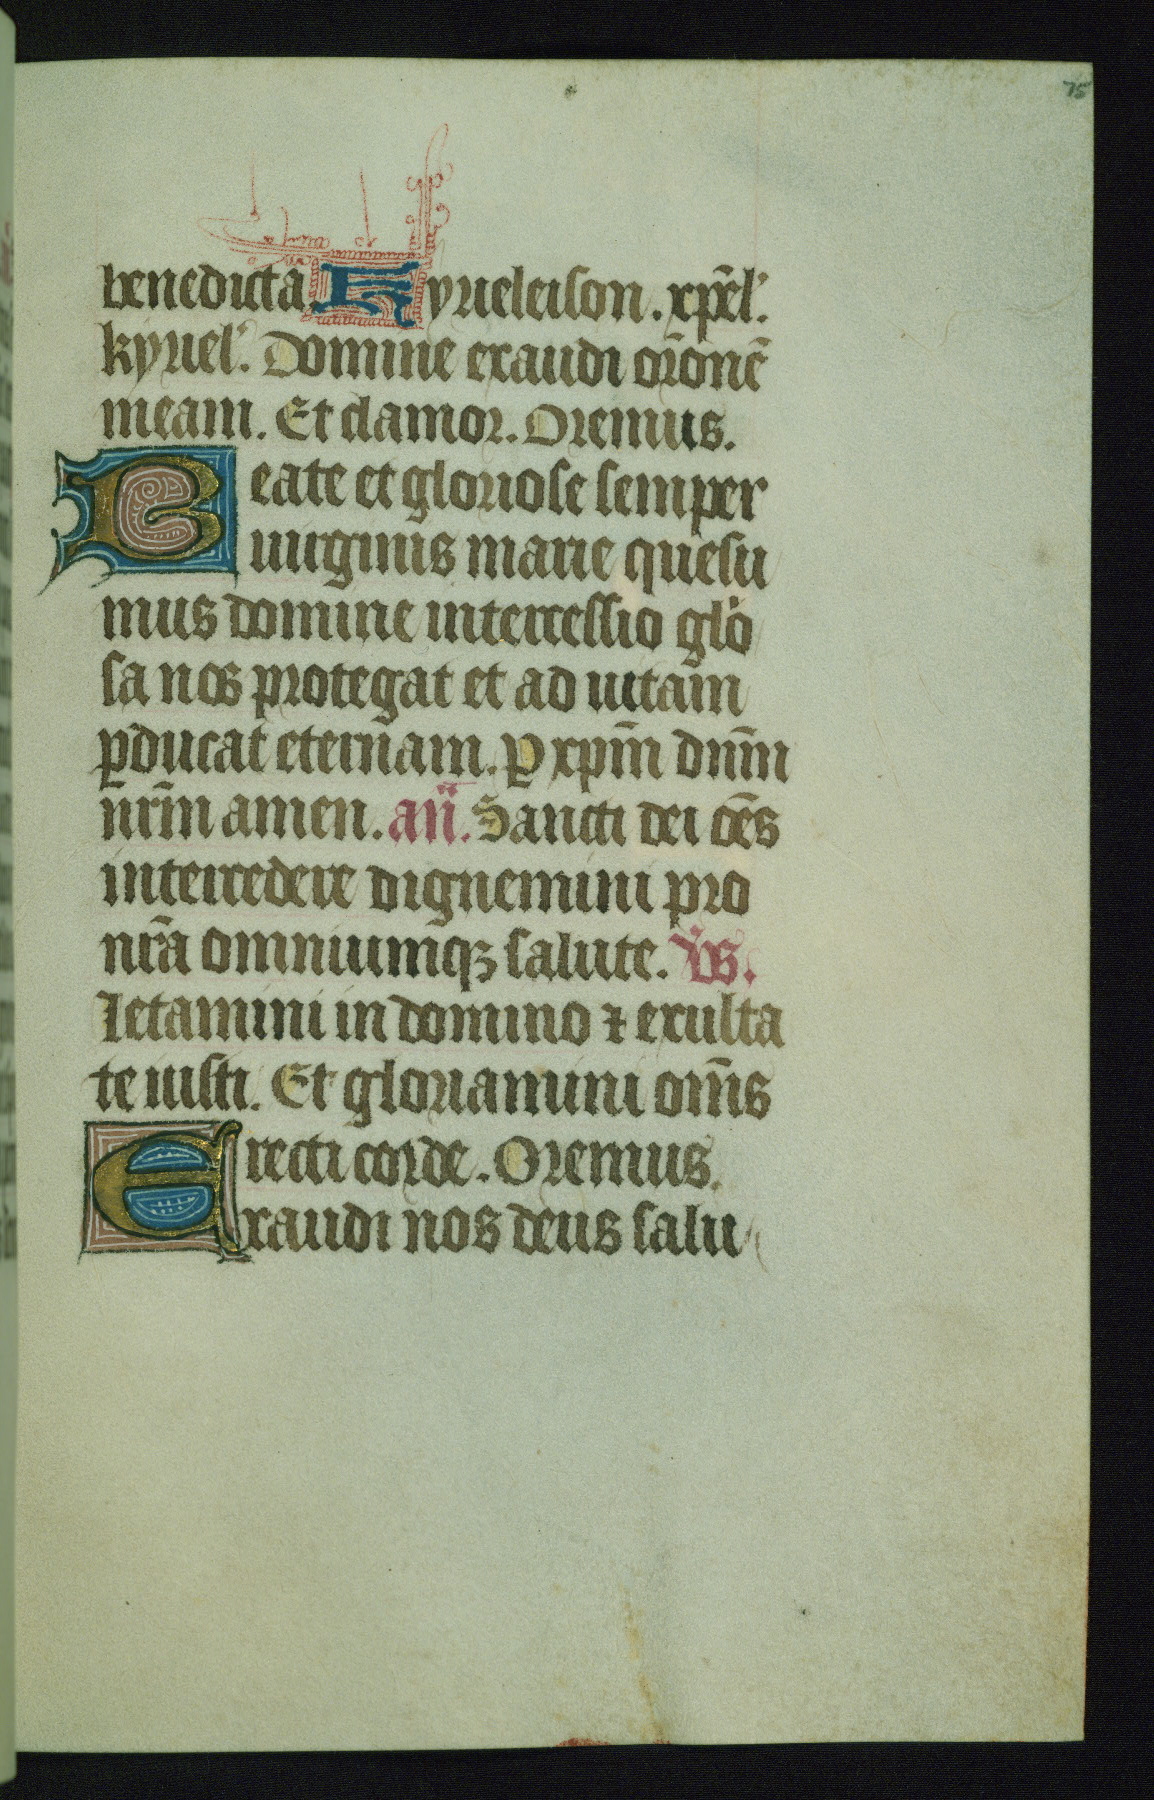 75
benedicta Kyrieleison. xp̄el'.
kyriel'. Domine exaudi or̄onē
meam. Et clamor. Oremus.
Beate et gloriose semper
uirginis marie quesu
mus domine intercessio glo
sa nos protegat et ad uitam
ꝑducat eternam. ꝑ xp̄m dn̄m
nr̄m amen. an̄. Sancti dei oēs
intercedere dignemini pro
nr̄a omniumqꝫ salute. V̄s.
Letamini in domino ⁊ exulta
te iusti. Et gloriamini om̄s
recti corde. Oremus.
Exaudi nos deus salu